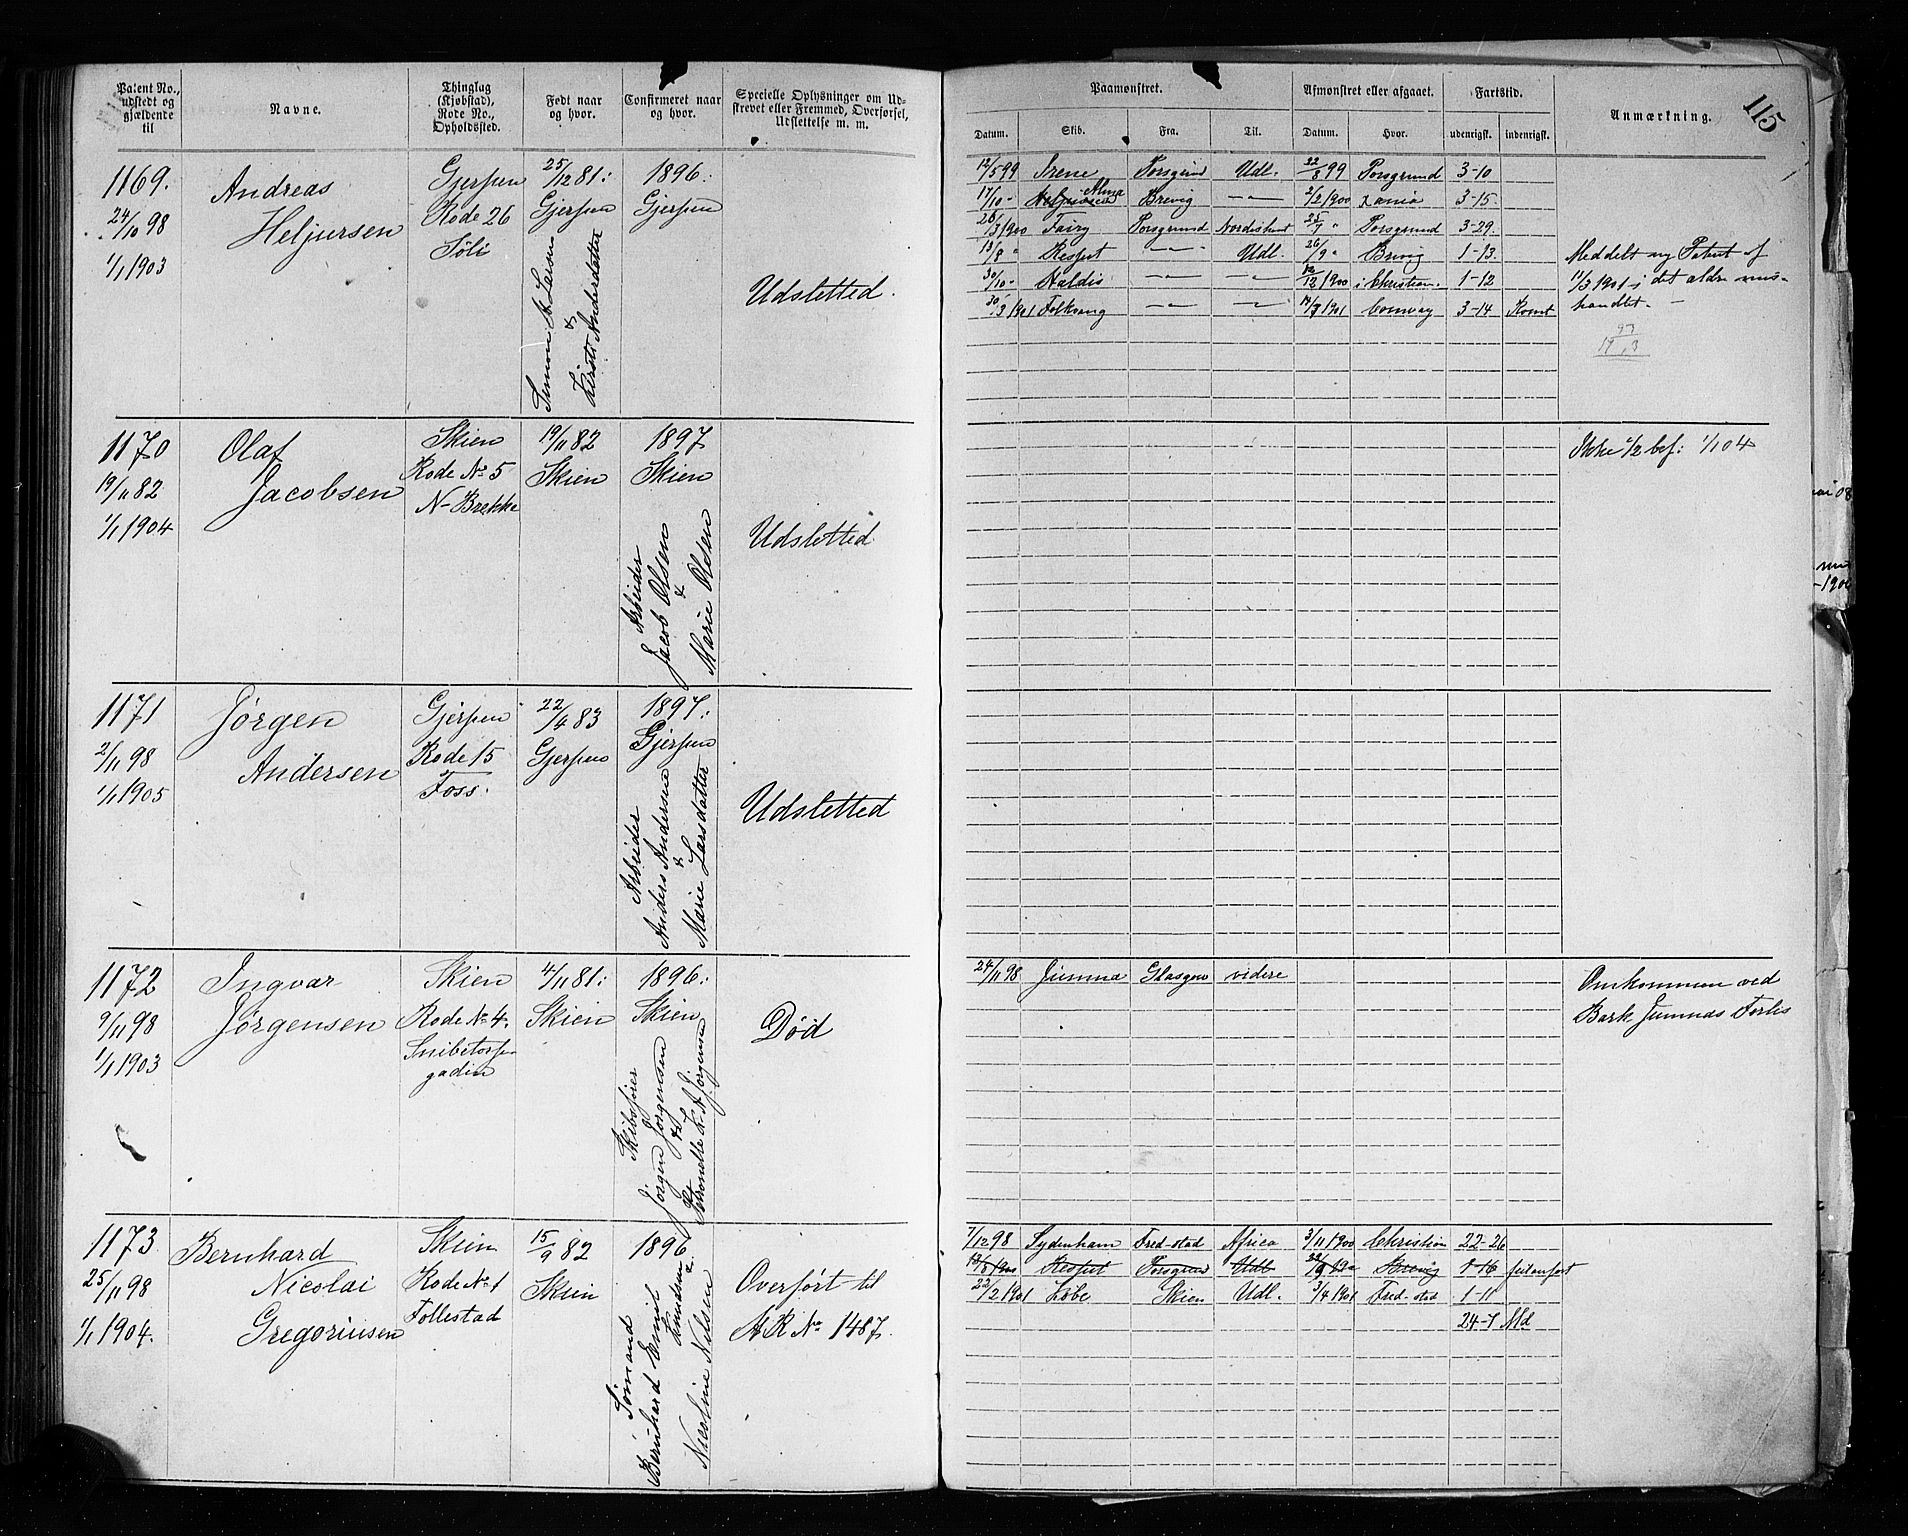 Patent No., udstedt og gjældende til
Navne.
Thinglag (Kjøbstad), Rode No., Opholdssted.
Født naar og hvor.
Confirmeret naar og hvor.
Specielle Oplysninger om Udskrevet eller Fremmed, Overførsel, Udslettelse m. m.
Paamønstret.
Datum.
Skib.
Fra.
Til.
Afmønstret eller afgaaet.
Datum.
Hvor.
Fartstid.
udenrigsk.
indenrigsk.
Anmærkning.
115
1169.
24/10 98
1/1 1903
Andreas
Heljursen
Gjerpen
Rode 26
Føli
25/12 81:
Gjerpen
Simon A. Larsen
&
Kirsti Andersdatter
1896:
Gjerpen
Udslettet.
12/5 99 Irene Porsgrund Udl. 22/8 99 Porsgrund 3-10
17/10 - Alma Brevig -"- 2/2 1900 3-15
26/3 1900 Fairy Porsgrund 25/7 " Porsgrund 3-29
13/8 " Respit -"- Udl. 26/9 " Brevig 1-13
30/10 - Haldis -"- -"- 12/12 1900 i Christian. 1-12
30/3 1901 Folkvang -"- -"- 14/7 1901 Conway 3-14 Komt
Meddelt ny Patent af
11/3 1901 - i det ældre mis-
handlet. -
1170
19/11 82
1/1 1904
Olaf
Jacobsen
Skien
Rode No 5
N-Brekke
19/11 82
Skien
1897
Skien
Arbeider
Jacob Olsen
&
Marie Olsen
Udslettet
Ikke 1/2 bef: 1/1 04
1171
2/11 98
1/1 1905
Jørgen
Andersen
Gjerpen
Rode 15
Foss.
22/4 83
Gjerpen
1897:
Gjerpen
Arbeider
Anders Andersen
&
Marie Larsdatter
Udslettet
1172
9/11 98
1/1 1903
Ingvar
Jørgensen
Skien
Rode No 4.
Snibetorp
gaden
4/11 81:
Skien
1896:
Skien
Skibsfører
Jørgen Jørgensen
&
Død
24/11 98 Jumna Glasgow videre
Omkommen ved
Bark Jumnas Forlis
1173
25/11 98
1/1 1904.
Bernhard
Nicolai
Gregoriusen
Skien
Rode No 1
Follestad
15/9 82
Skien
1896
Sømand
Bernhard Emil
Knudsen &
Nicoline Nilsen
Overført til
A R No 1487.
7/12 98 Sydenham Fred-stad Africa 3/11 1900 Christian 22-26
13/8 1900 Respit Porsgrund Udl. Brevig 1-16 feilanført
22/2 1901 Løbe Skien Udl. 3/4 1901 Fred-stad 1-11
24-7 Md